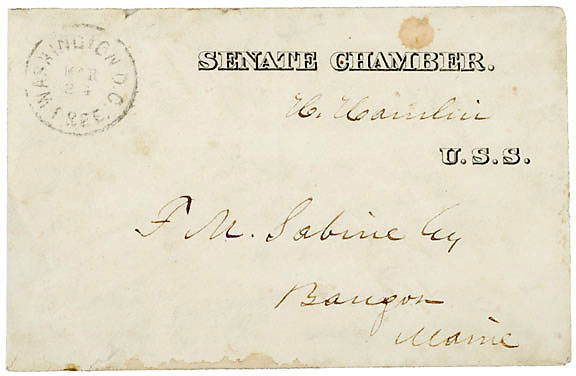 SENATE CHAMBER.
WASHINGTON D.C.
MAR
H. Hamlin
U.S.S.
F M. Sabine Esq
Bangor
Maine